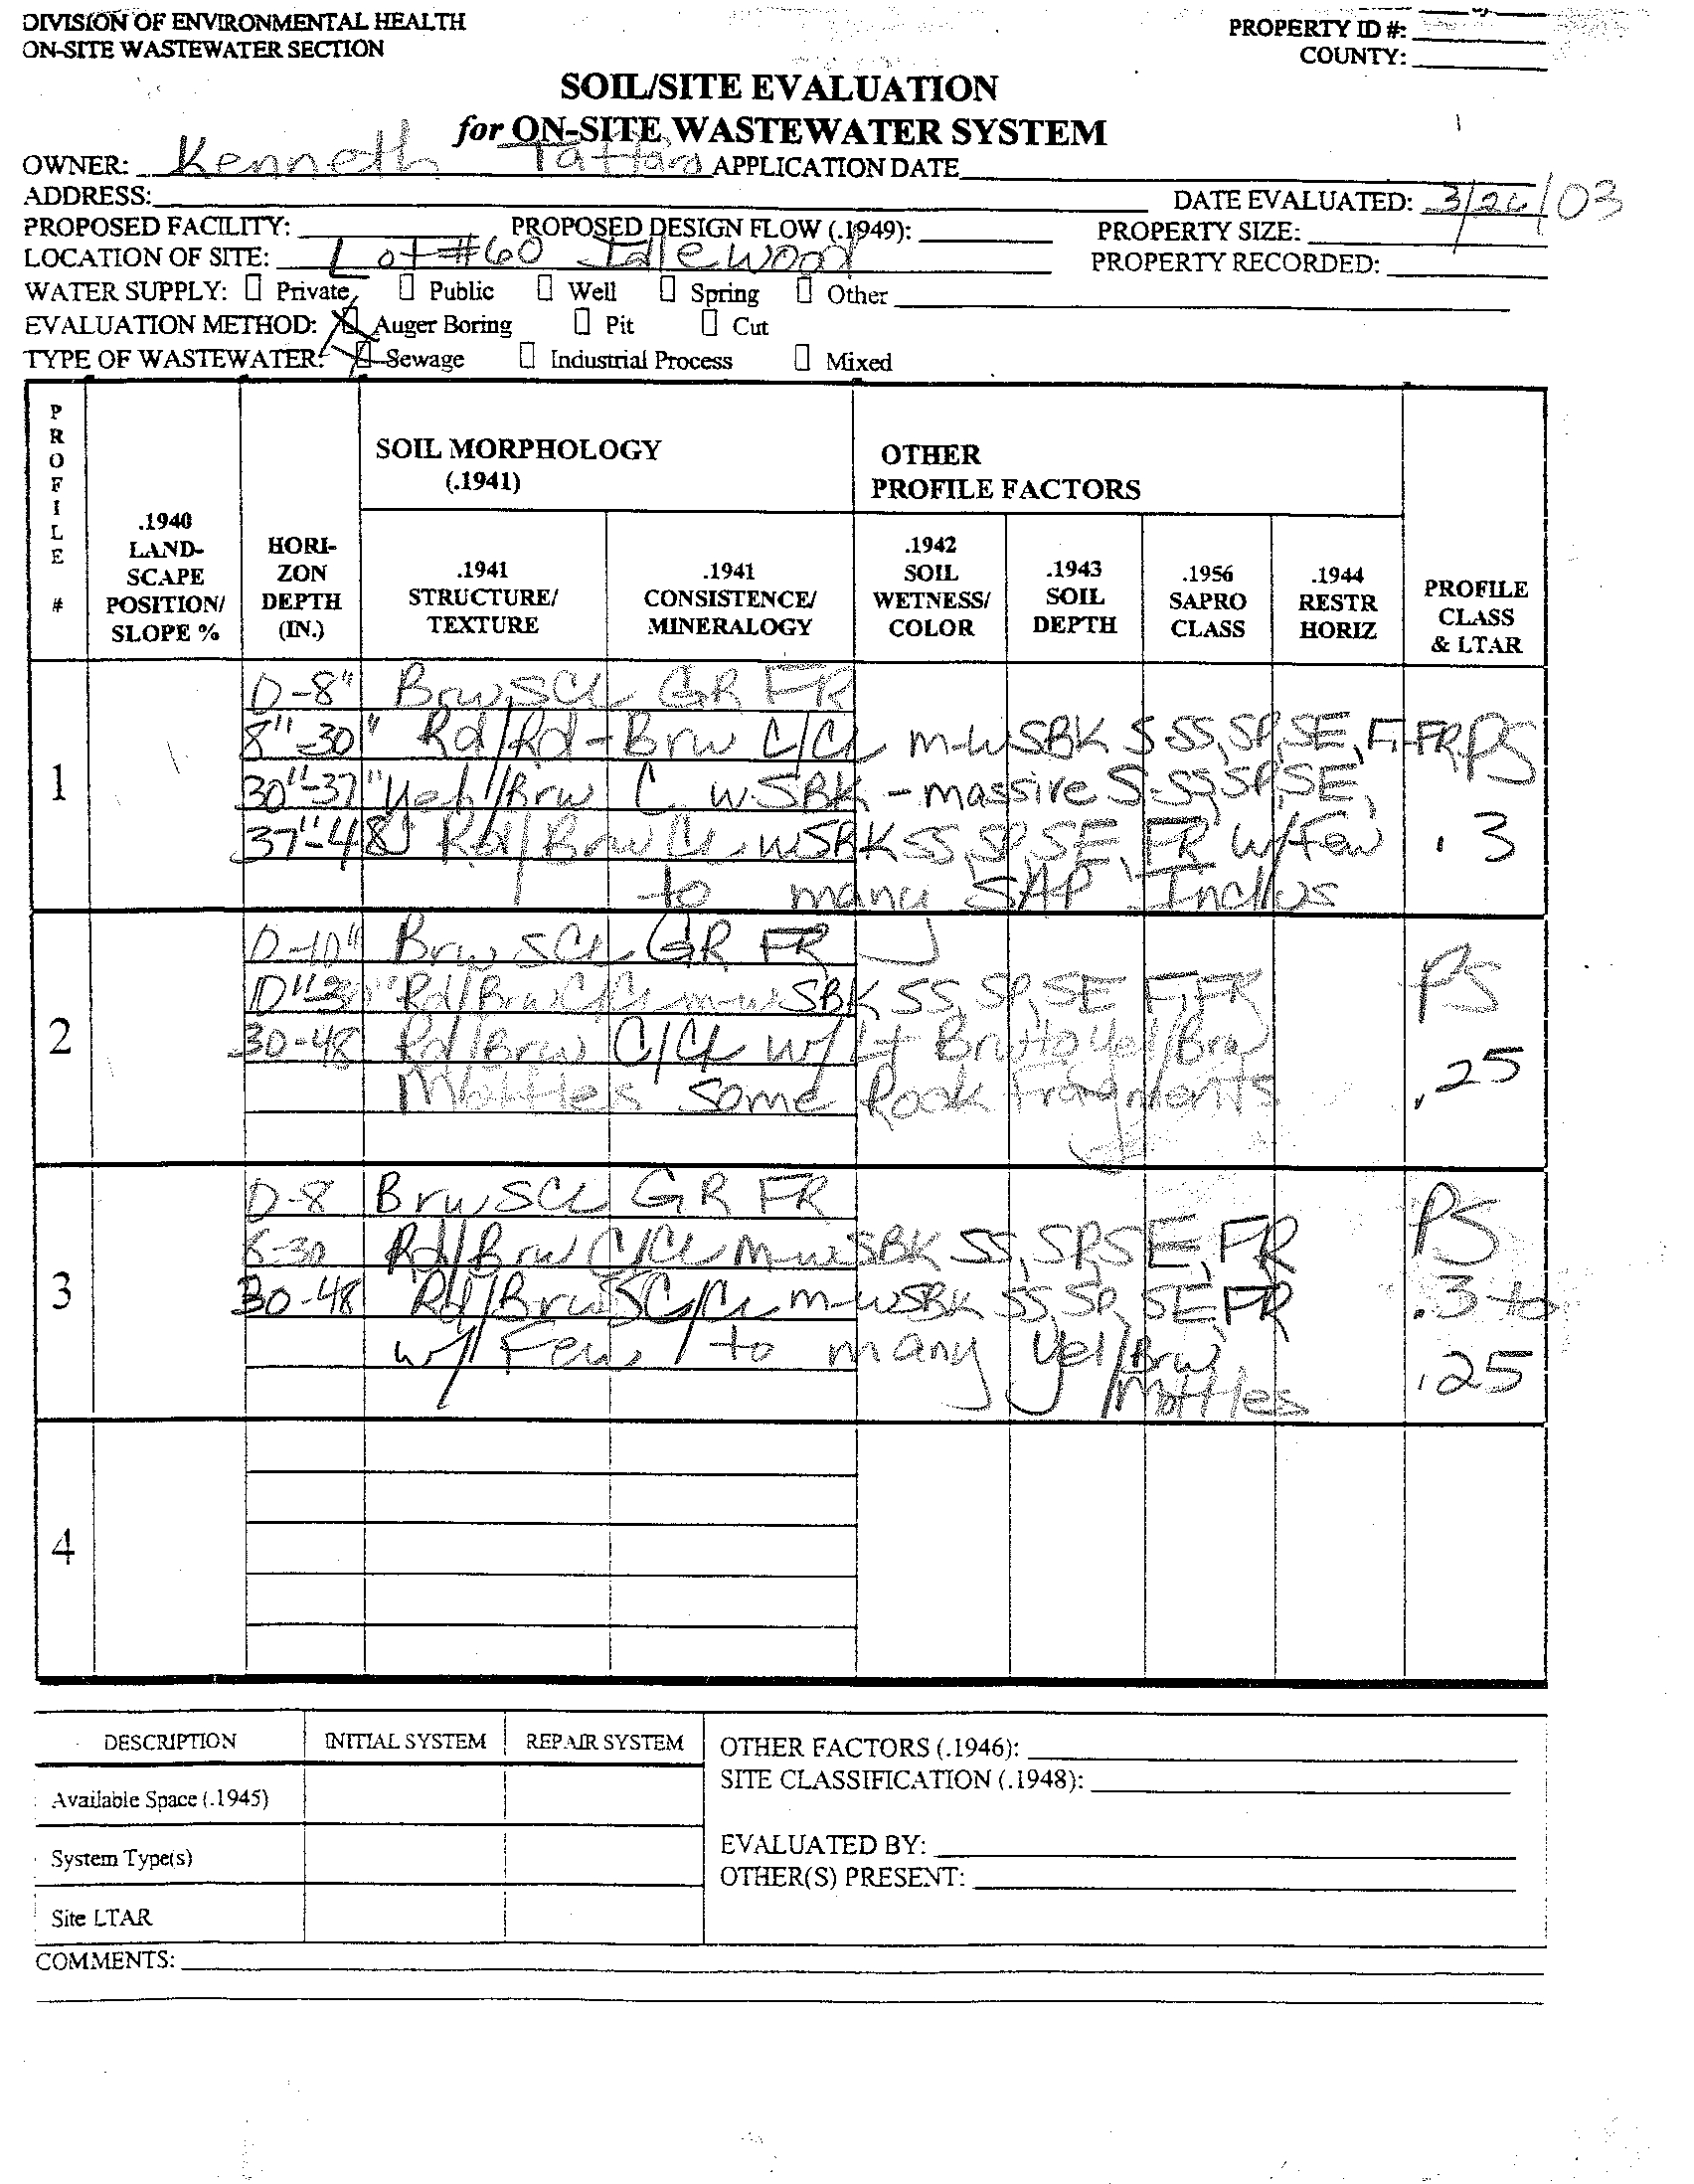 DIVISION OF ENVIRONMENTAL HEALTH
ON-SITE WASTEWATER SECTION
PROPERTY ID #:
COUNTY:
SOIL/SITE EVALUATION
for ON-SITE WASTEWATER SYSTEM
OWNER: Kenneth APPLICATION DATE
ADDRESS: DATE EVALUATED: 3/26/03
PROPOSED FACILITY: PROPOSED DESIGN FLOW (.1949): PROPERTY SIZE:
LOCATION OF SITE: Lot #60 Idlewood PROPERTY RECORDED:
WATER SUPPLY: Private Public Well Spring Other
EVALUATION METHOD: X Auger Boring Pit Cut
TYPE OF WASTEWATER: X Sewage Industrial Process Mixed
PROFILE #
.1940 LAND-SCAPE POSITION/ SLOPE %
HORI-ZON DEPTH (IN.)
SOIL MORPHOLOGY (.1941)
.1941 STRUCTURE/ TEXTURE
.1941 CONSISTENCE/ MINERALOGY
OTHER PROFILE FACTORS
.1942 SOIL WETNESS/ COLOR
.1943 SOIL DEPTH
.1956 SAPRO CLASS
.1944 RESTR HORIZ
PROFILE CLASS & LTAR
1
0-8" Brw SCL GR FR
8"-30" Rd/Rd-Brw C/CL m-wSBK S-SS, SP, SE, F-FR PS
30"-37" Yel/Brw C wSBK - massive S-SS, SP, SE,
37"-48 Rd/Brw CL wSBK SS, SP, SE, FR w/Few .3
to many SAP Inclus
2
0-10" Brw SCL GR FR
10"-30" Rd/Brw C/CL m-wSBK SS, SP, SE F, FR PS
30-48 Rd/Brw C/CL w/ Lt Brw to Yel/Brw
Mottles Some Rock Fragments .25
3
0-8 Brw SCL GR FR PS
8-30 Rd/Brw C/CL m-wSBK SS, SP, SE, FR
30-48 Rd/Brw SC/CL m-wSBK SS, SP, SE, FR .3 to
w/ Few to many yel/Brw .25
Mottles
4
DESCRIPTION INITIAL SYSTEM REPAIR SYSTEM
OTHER FACTORS (.1946):
SITE CLASSIFICATION (.1948):
Available Space (.1945)
EVALUATED BY:
System Type(s)
OTHER(S) PRESENT:
Site LTAR
COMMENTS: